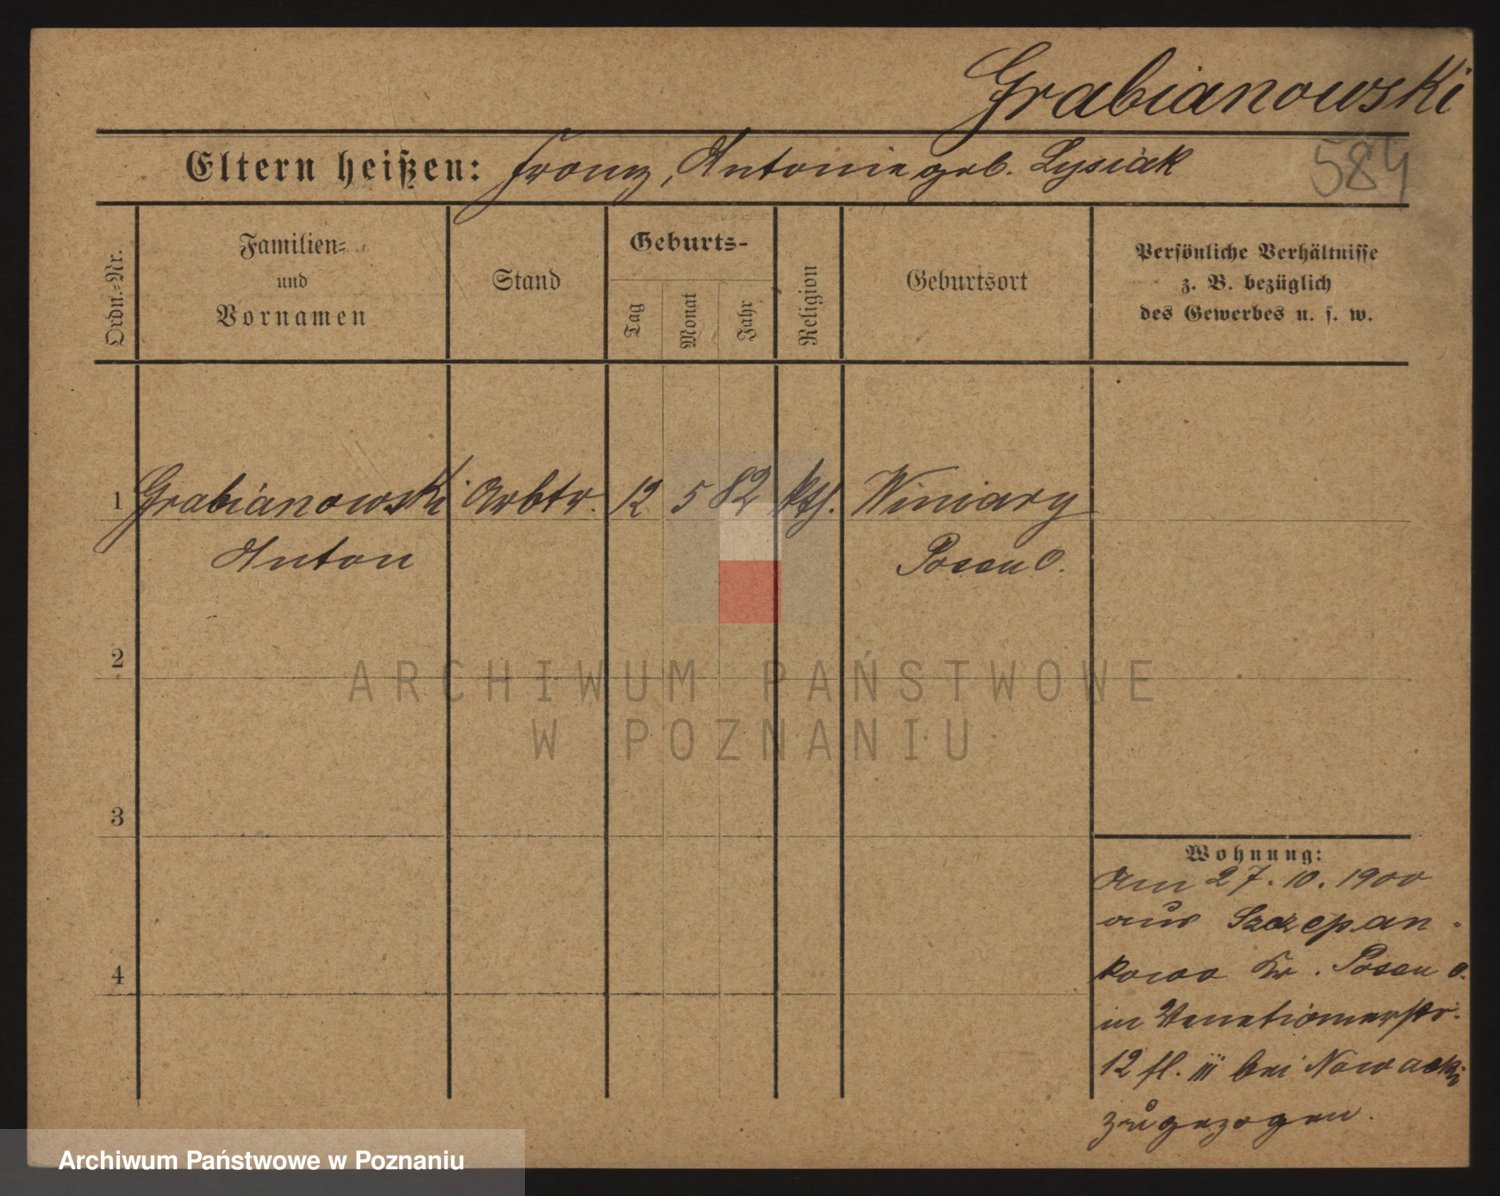 Grabianowski
Eltern heißen: Franz, Antonie geb. Lysiak
584
Ordn.-Nr.
Familien-
und
Vornamen
Stand
Geburts-
Tag
Monat
Jahr
Religion
Geburtsort
Persönliche Verhältnisse
z. B. bezüglich
des Gewerbes u. s. w.
1 Grabianowski Arbtr. 12 5 82 kth. Winiary
Anton Posen O.
2
3
4
Wohnung:
Am 27. 10. 1900
aus Szczepan-
kowo Kr. Posen O.
in Venetianerstr.
12 fl. III bei Nowacki
zugezogen.
ARCHIWUM PAŃSTWOWE
W POZNANIU
Archiwum Państwowe w Poznaniu